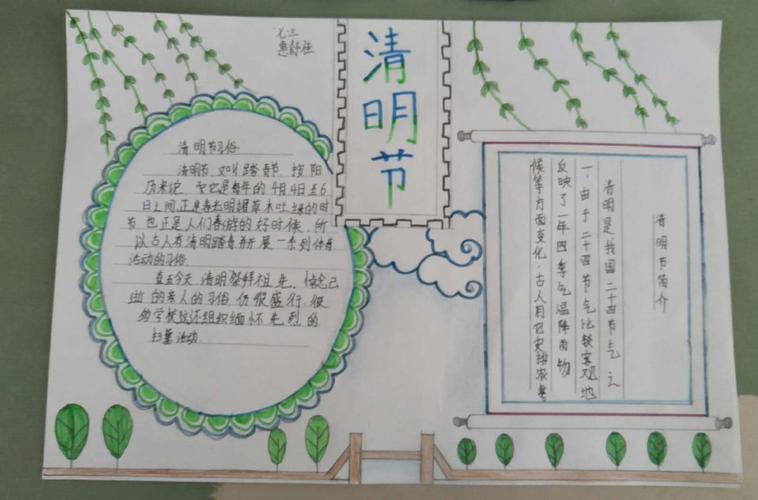 七三
清明节
清明节习俗
清明节,又叫踏青节,按阳
历来说,它是每年的4月4日至6
日之间,正是春光明媚草木吐绿的时
节,也正是人们春游的好时候,所
以古人有清明踏青并开展一系列体育
活动的习俗
直至今天,清明祭拜祖先,悼念已
逝的亲人的习俗仍很盛行,很
多学校还组织缅怀先烈的
扫墓活动.
清明节简介
清明是我国二十四节气之
一.由于二十四节气比较客观地
反映了一年四季气温降雨物
候等方面变化.古人用它安排农事